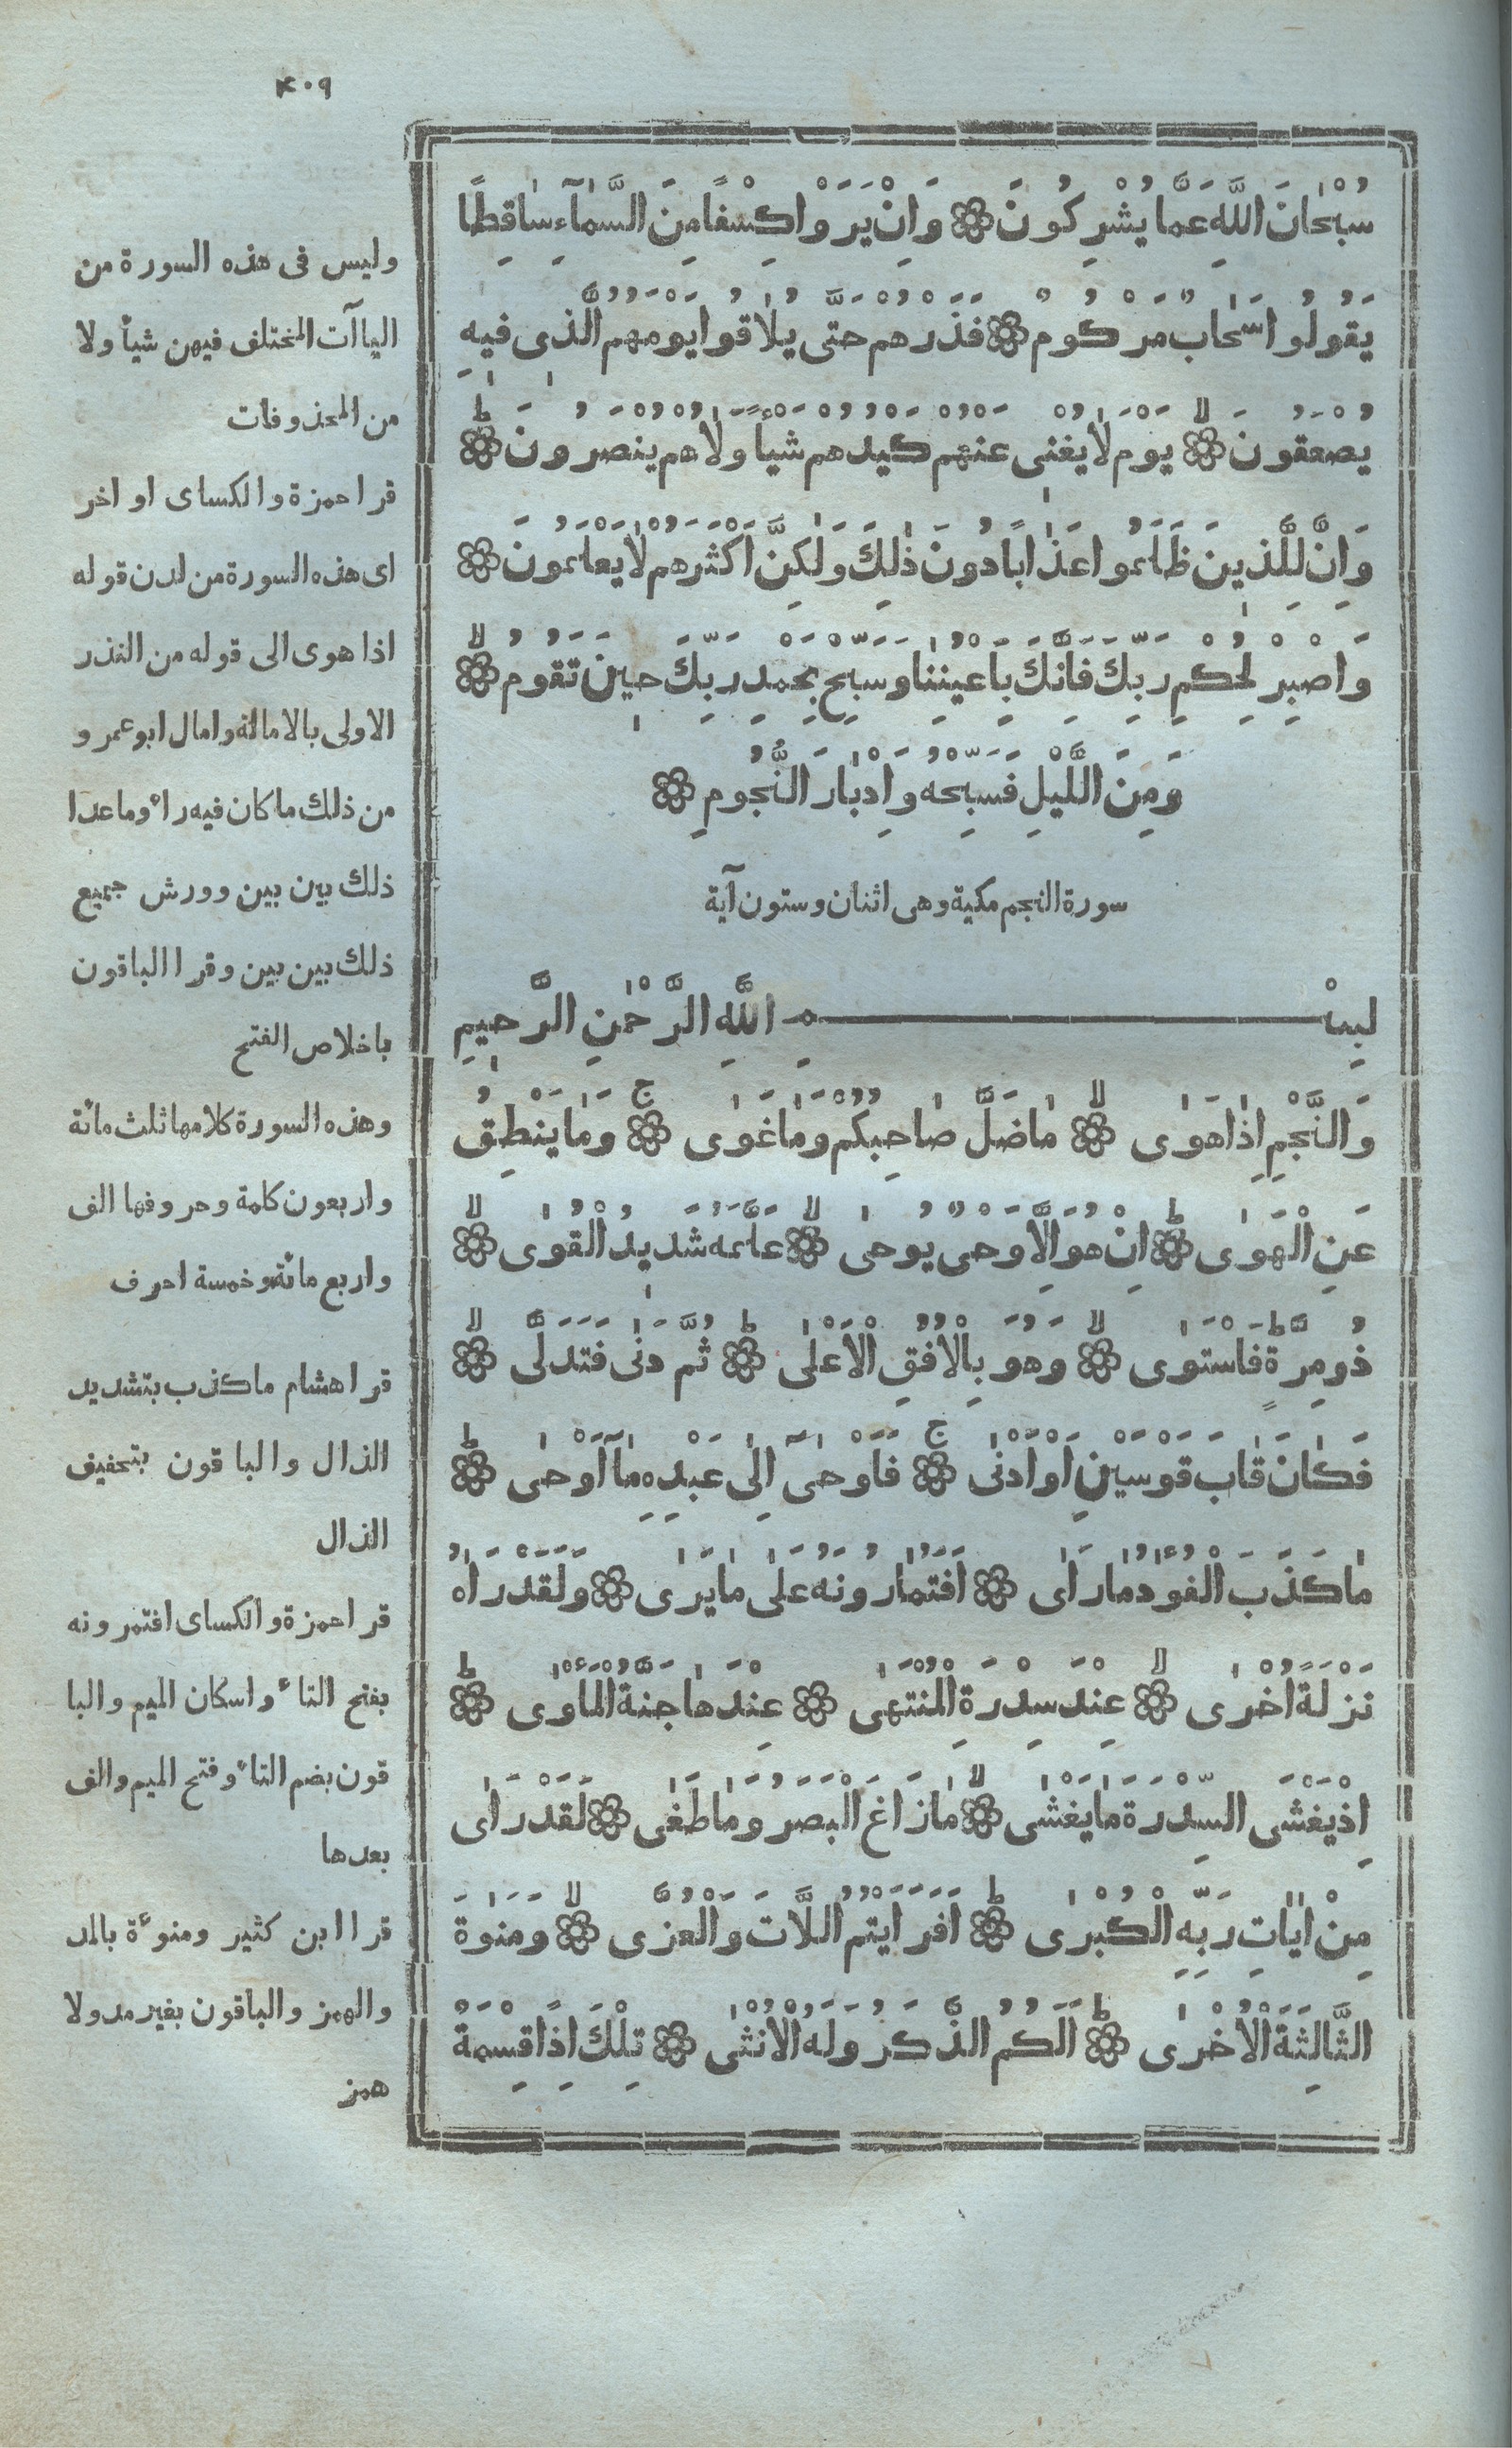 ۴۰۹
سُبْحَانَ اللَّهِ عَمَّا يُشْرِكُونَ ۞ وَاِنْ يَرَوْا كِسْفًا مِنَ السَّمَآءِ سَاقِطًا
يَقُولُوا سَحَابٌ مَرْكُومٌ ۞ فَذَرْهُمْ حَتَّى يُلَاقُوا يَوْمَهُمُ الَّذِى فِيهِ
يُصْعَقُونَ ۙ۞ يَوْمَ لَا يُغْنِى عَنْهُمْ كَيْدُهُمْ شَيْأً وَلَا هُمْ يُنْصَرُونَ ۞ؕ
وَاِنَّ لِلَّذِينَ ظَلَمُوا عَذَابًا دُونَ ذٰلِكَ وَلٰكِنَّ اَكْثَرَهُمْ لَا يَعْلَمُونَ ۞
وَاصْبِرْ لِحُكْمِ رَبِّكَ فَاِنَّكَ بِاَعْيُنِنَا وَسَبِّحْ بِحَمْدِ رَبِّكَ حِينَ تَقُومُ ۙ۞
وَمِنَ اللَّيْلِ فَسَبِّحْهُ وَاِدْبَارَ النُّجُومِ ۞
سورة النجم مكية وهى اثنان وستون آية
بِسْمِ اللَّهِ الرَّحْمٰنِ الرَّحِيمِ
وَالنَّجْمِ اِذَا هَوٰى ۙ۞ مَا ضَلَّ صَاحِبُكُمْ وَمَا غَوٰى ۚ۞ وَمَا يَنْطِقُ
عَنِ الْهَوٰى ؕ۞ اِنْ هُوَ اِلَّا وَحْىٌ يُوحٰى ۙ۞ عَلَّمَهُ شَدِيدُ الْقُوٰى ۙ۞
ذُو مِرَّةٍ فَاسْتَوٰى ۙ۞ وَهُوَ بِالْاُفُقِ الْاَعْلٰى ؕ۞ ثُمَّ دَنٰى فَتَدَلَّى ۙ۞
فَكَانَ قَابَ قَوْسَيْنِ اَوْ اَدْنٰى ۚ۞ فَاَوْحَىٓ اِلٰى عَبْدِهِ مَآ اَوْحٰى ؕ۞
مَا كَذَبَ الْفُؤدُ مَا رَاٰى ۞ اَفَتُمَارُونَهُ عَلٰى مَا يَرٰى ۞ وَلَقَدْ رَاٰهُ
نَزْلَةً اُخْرٰى ۙ۞ عِنْدَ سِدْرَةِ الْمُنْتَهٰى ۞ عِنْدَهَا جَنَّةُ الْمَاْوٰى ؕ۞
اِذْ يَغْشَى السِّدْرَةَ مَا يَغْشٰى ۙ۞ مَا زَاغَ الْبَصَرُ وَمَا طَغٰى ۞ لَقَدْ رَاٰى
مِنْ اٰيَاتِ رَبِّهِ الْكُبْرٰى ؕ۞ اَفَرَاَيْتُمُ اللَّاتَ وَالْعُزَّى ۙ۞ وَمَنٰوةَ
الثَّالِثَةَ الْاُخْرٰى ؕ۞ اَلَكُمُ الذَّكَرُ وَلَهُ الْاُنْثٰى ۞ تِلْكَ اِذًا قِسْمَةٌ
وليس فى هذه السورة من
الياآت المختلف فيهن شيأ ولا
من المحذوفات
قرا حمزة والكساى اواخر
اى هذه السورة من لدن قوله
اذا هوى الى قوله من النذر
الاولى بالامالة وامال ابو عمر و
من ذلك ما كان فيه راء وما عدا
ذلك بين بين وورش جميع
ذلك بين بين وقرا الباقون
باخلاص الفتح
وهذه السورة كلامها ثلث مائة
واربعون كلمة وحروفها الف
واربع مائة وخمسة احرف
قرا هشام ما كذب بتشديد
الذال والباقون بتخفيف
الذال
قرا حمزة والكساى افتمرونه
بفتح التاء واسكان الميم والبا
قون بضم التاء وفتح الميم والف
بعدها
قرا ابن كثير ومنوءة بالمد
والهمز والباقون بغير مد ولا
همز